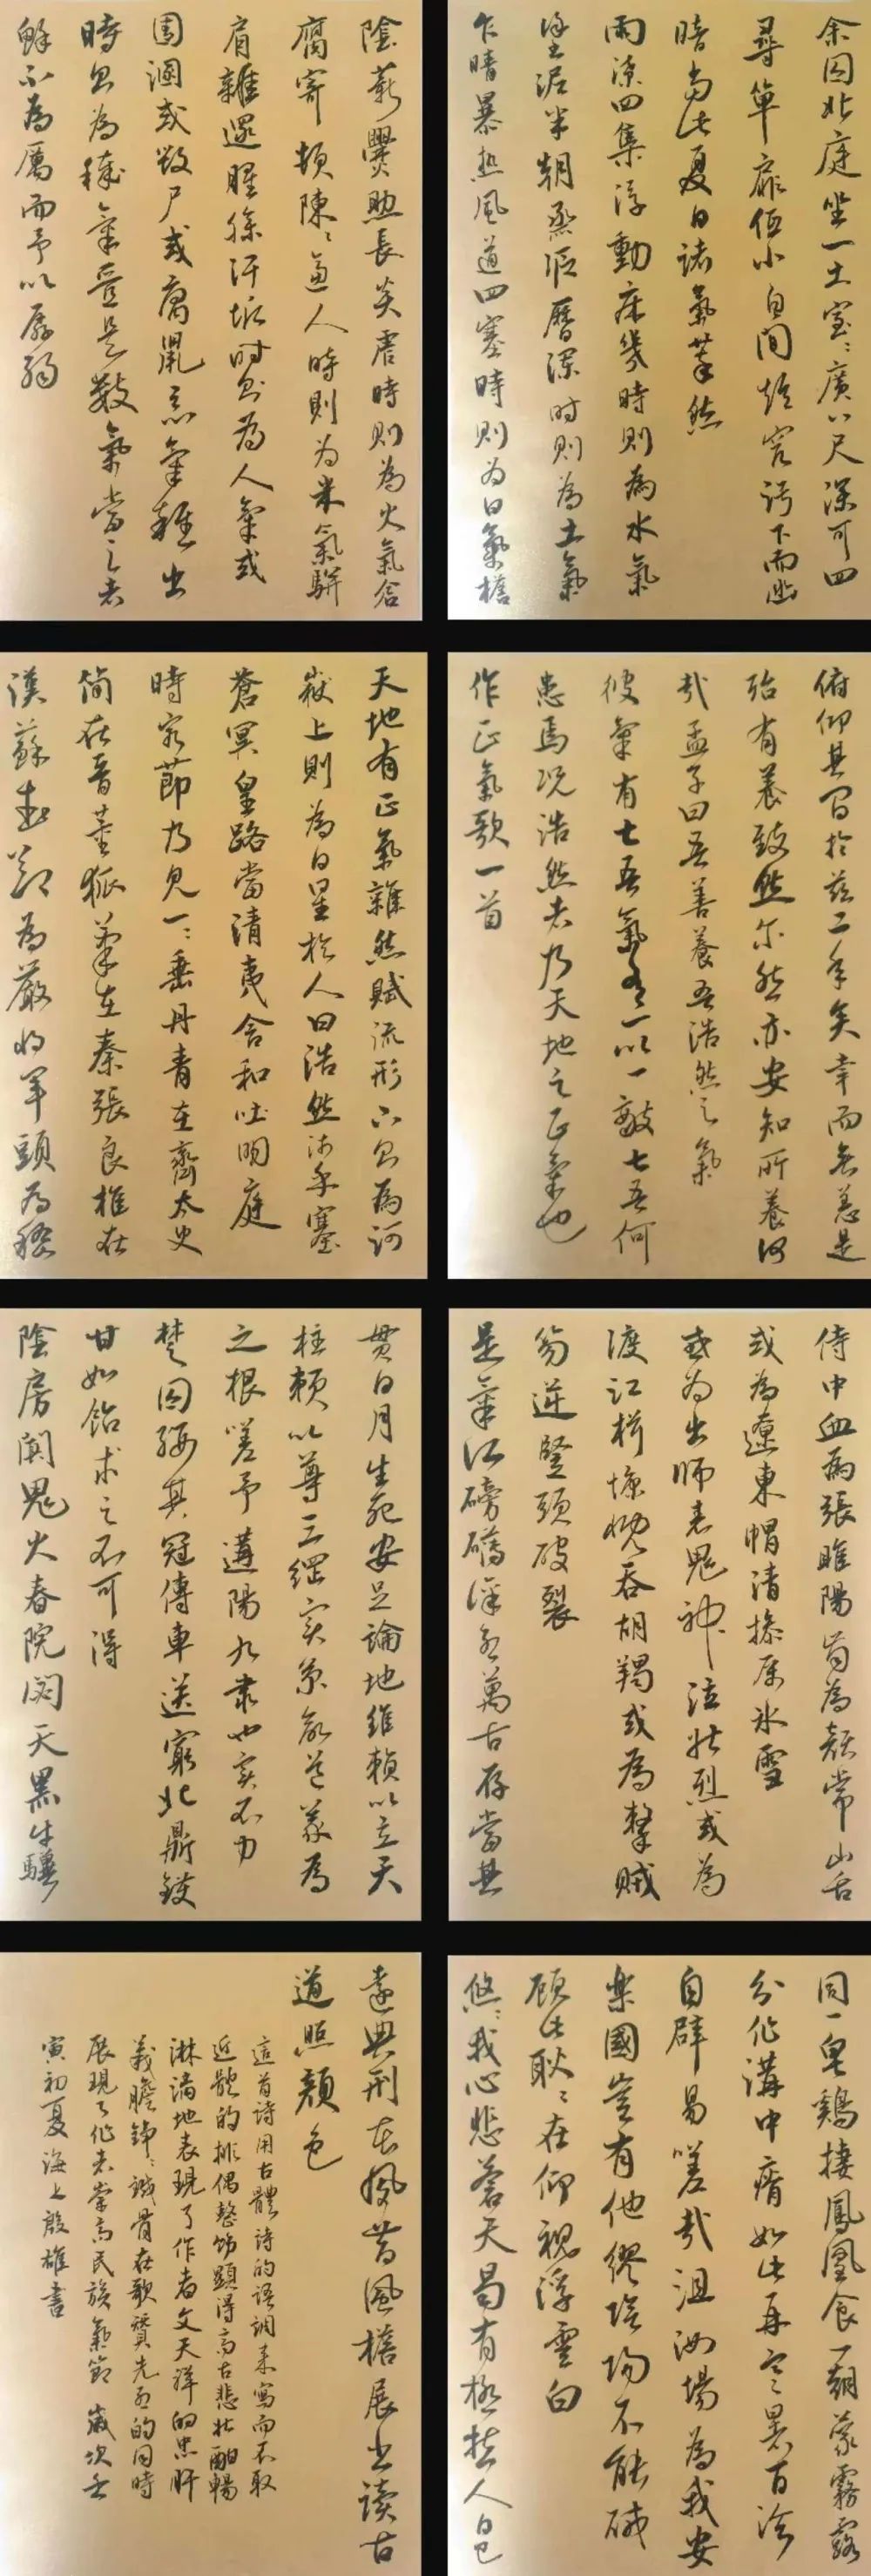 余囚北庭坐一土室〻廣八尺深可四
尋單扉低小白間短窄污下而幽
暗當此夏日諸氣萃然
雨潦四集浮動床幾時則為水氣
塗泥半朝蒸漚歷瀾时則為土氣
乍晴暴熱風道四塞時則为日氣檐
陰薪爨助長炎虐時則為火氣倉
腐寄頓陳〻逼人時則为米氣駢
肩雜遝腥臊汗垢时則為人氣或
圊溷或毀尸或腐鼠惡氣雜出
時則為穢氣疊是數氣當之者
鲜不為厲而予以孱弱
俯仰其間於茲二年矣幸而無恙是
殆有養致然尔然亦安知所養何
哉孟子曰吾善養吾浩然之氣
彼氣有七吾氣有一以一敵七吾何
患焉况浩然者乃天地之正氣也
作正氣歌一首
天地有正氣雜然賦流形下則為河
嶽上則為日星於人曰浩然沛乎塞
蒼冥皇路當清夷含和吐明庭
時窮節乃見一〻垂丹青在齊太史
簡在晉董狐筆在秦張良椎在
漢蘇武節为嚴将軍頭为嵇
侍中血為張睢陽齒為顏常山舌
或為遼東帽清操厲冰雪
或为出師表鬼神泣壯烈或为
渡江楫慷慨吞胡羯或為擊賊
笏逆豎頭破裂
是氣所磅礴凜烈萬古存當其
贯日月生死安足論地維賴以立天
柱賴以尊三綱实系命道義为
之根嗟予遘陽九隶也实不力
楚囚纓其冠傳車送窮北鼎鑊
甘如飴求之不可得
陰房闃鬼火春院閟天黑牛驥
同一皂鷄棲鳳凰食一朝蒙霧露
分作溝中瘠如此再寒暑百沴
自辟易嗟哉沮洳場為我安
樂國豈有他繆巧陰陽不能賊
顾此耿〻在仰視浮雲白
悠〻我心悲蒼天曷有極哲人日已
遠典刑在夙昔風檐展书读古
道照顏色
這首詩用古體诗的语調来寫而不取
近體的排偶整飭顯得高古悲壯酣暢
淋漓地表現了作者文天祥的忠肝
義膽錚〻鐵骨在歌讚先烈的同時
展現了作者崇高民族氣節 歲次壬
寅初夏海上殷雄書